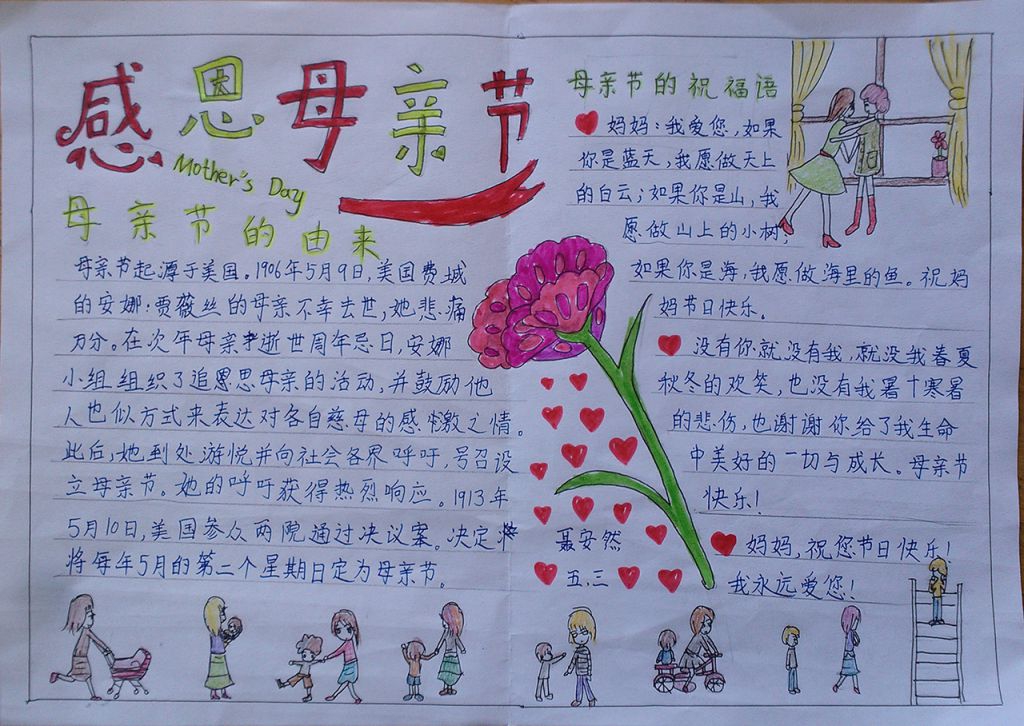 感恩母亲节
Mother's Day
母亲节的由来
母亲节起源于美国。1906年5月9日,美国费城
的安娜:贾薇丝的母亲不幸去世,她悲痛
万分。在次年母亲逝世周年忌日,安娜
小组组织了追思母亲的活动,并鼓励他
人也似方式来表达对各自慈母的感激之情。
此后,她到处游悦并向社会各界呼吁,号召设
立母亲节。她的呼吁获得热烈响应。1913年
5月10日,美国参众两院通过决议案。决定
将每年5月的第二个星期日定为母亲节。
母亲节的祝福语
妈妈:我爱您,如果
你是蓝天,我愿做天上
的白云;如果你是山,我
愿做山上的小树;
如果你是海,我愿做海里的鱼。祝妈
妈节日快乐。
没有你就没有我,就没我春夏
秋冬的欢笑,也没有我暑十寒暑
的悲伤,也谢谢你给了我生命
中美好的一切与成长。母亲节
快乐!
妈妈,祝您节日快乐!
我永远爱您!
聂安然
五.三